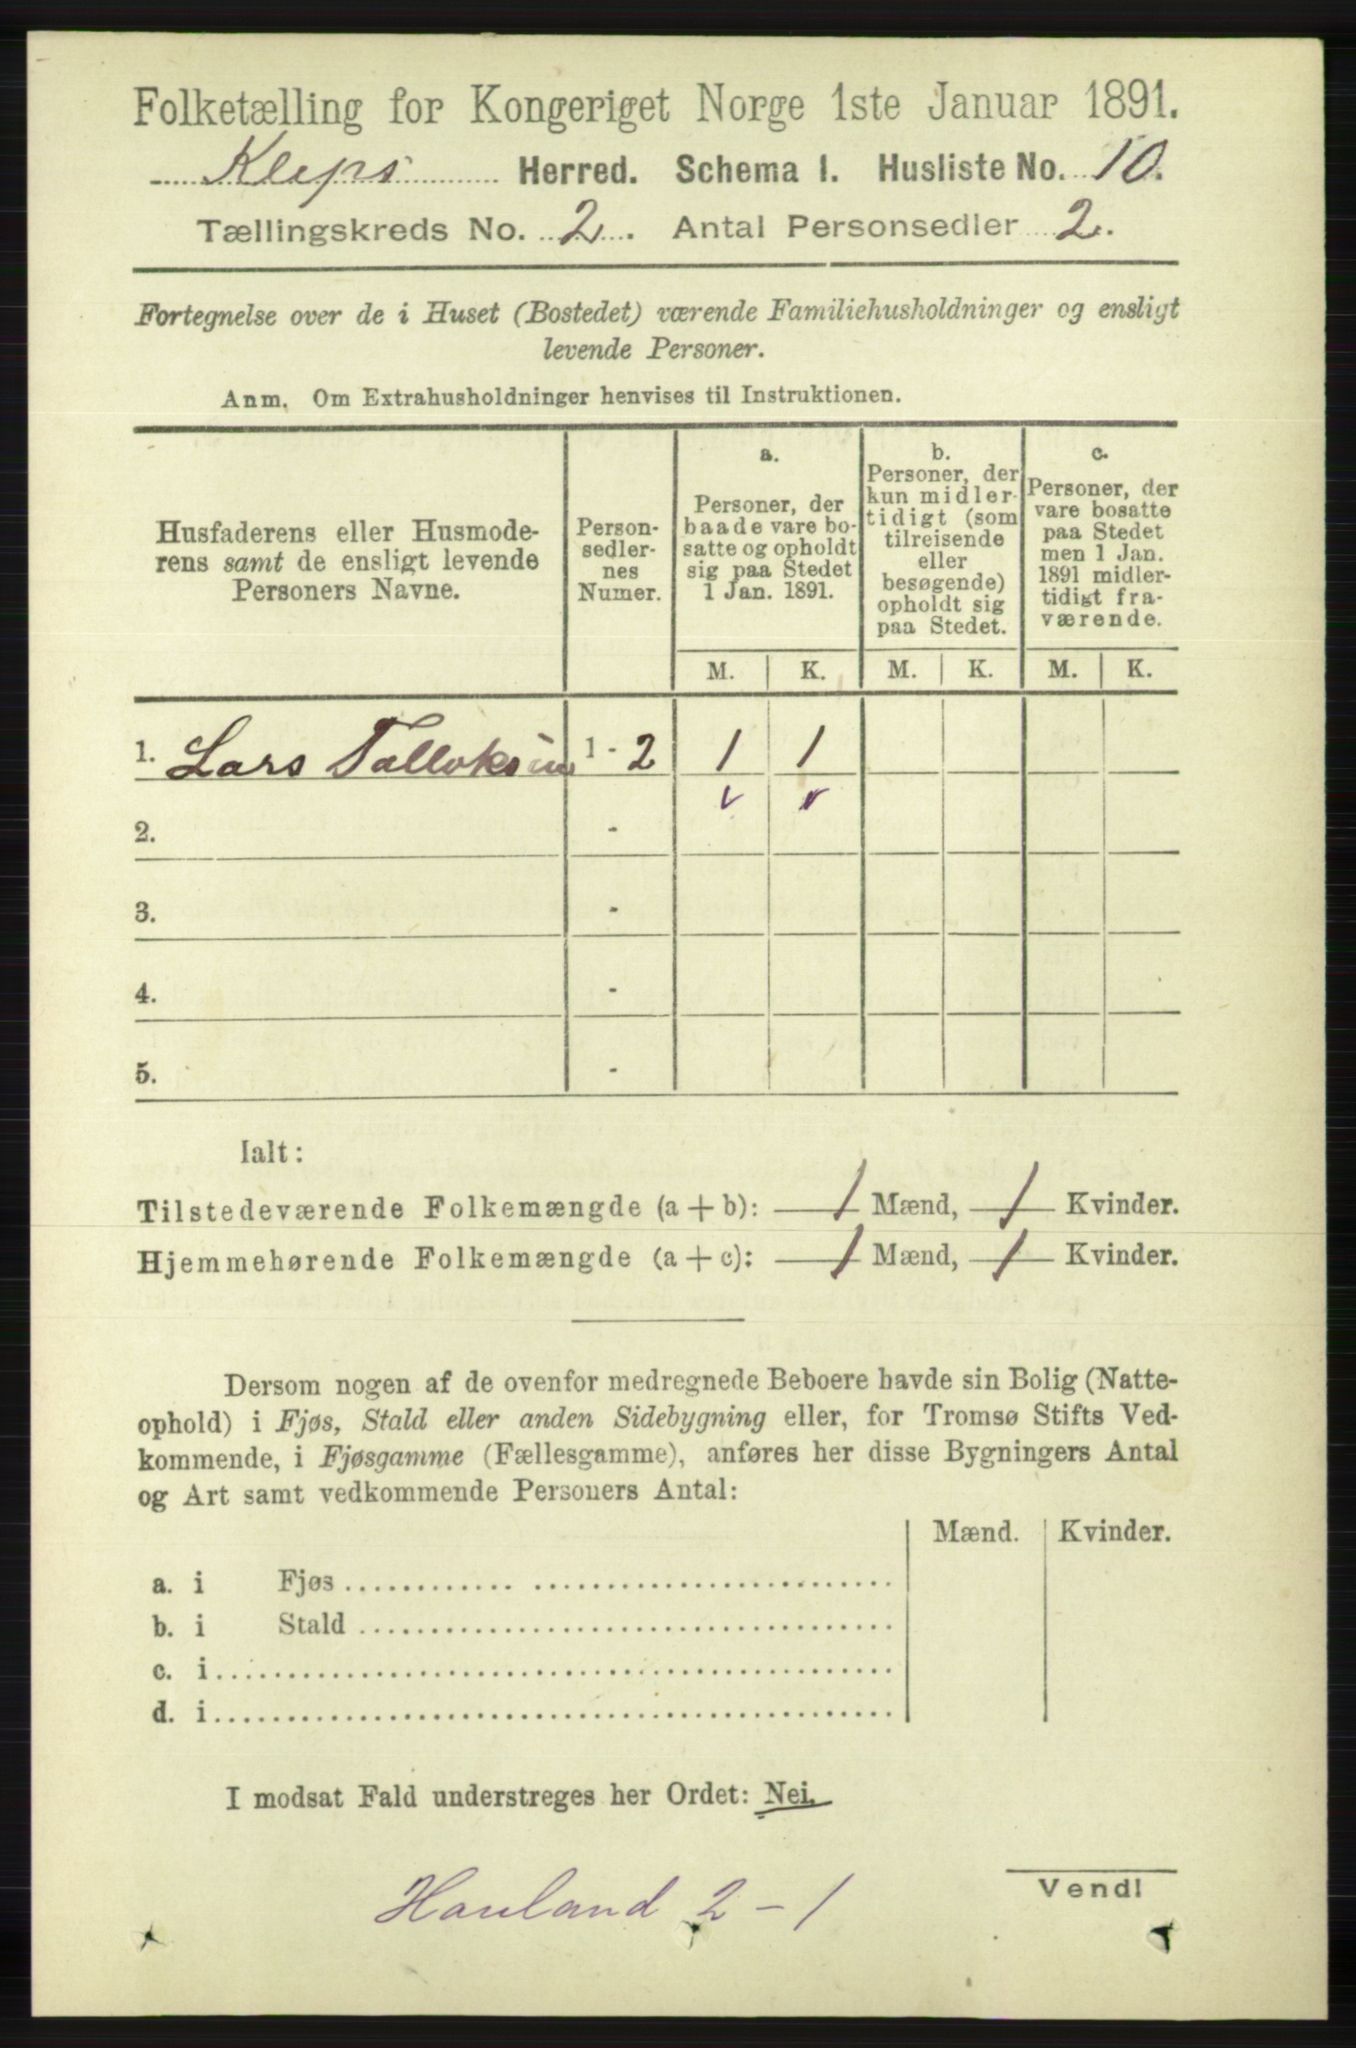 Folketælling for Kongeriget Norge 1ste Januar 1891.
Kleps Herred. Schema 1. Husliste No. 10.
Tællingskreds No. 2. Antal Personsedler 2.
Fortegnelse over de i Huset (Bostedet) værende Familiehusholdninger og ensligt
levende Personer.
Anm. Om Extrahusholdninger henvises til Instruktionen.
Husfaderens eller Husmode-
rens samt de ensligt levende
Personers Navne.
Person-
sedler-
nes
Numer.
a.
Personer, der
baade vare bo-
satte og opholdt
sig paa Stedet
1 Jan. 1891.
b.
Personer, der
kun midler-
tidigt (som
tilreisende
eller
besøgende)
opholdt sig
paa Stedet.
c.
Personer, der
vare bosatte
paa Stedet
men 1 Jan.
1891 midler-
tidigt fra-
værende.
M. K. M. K. M. K.
1. Lars 1 - 2 1 1
2. -
3. -
4. -
5. -
Ialt:
Tilstedeværende Folkemængde (a + b): 1 Mænd, 1 Kvinder.
Hjemmehørende Folkemængde (a + c): 1 Mænd, 1 Kvinder.
Dersom nogen af de ovenfor medregnede Beboere havde sin Bolig (Natte-
ophold) i Fjøs, Stald eller anden Sidebygning eller, for Tromsø Stifts Ved-
kommende, i Fjøsgamme (Fællesgamme), anføres her disse Bygningers Antal
og Art samt vedkommende Personers Antal:
Mænd. Kvinder.
a. i Fjøs
b. i Stald
c. i
d. i
I modsat Fald understreges her Ordet: Nei.
Vend!
Hauland 2 - 1